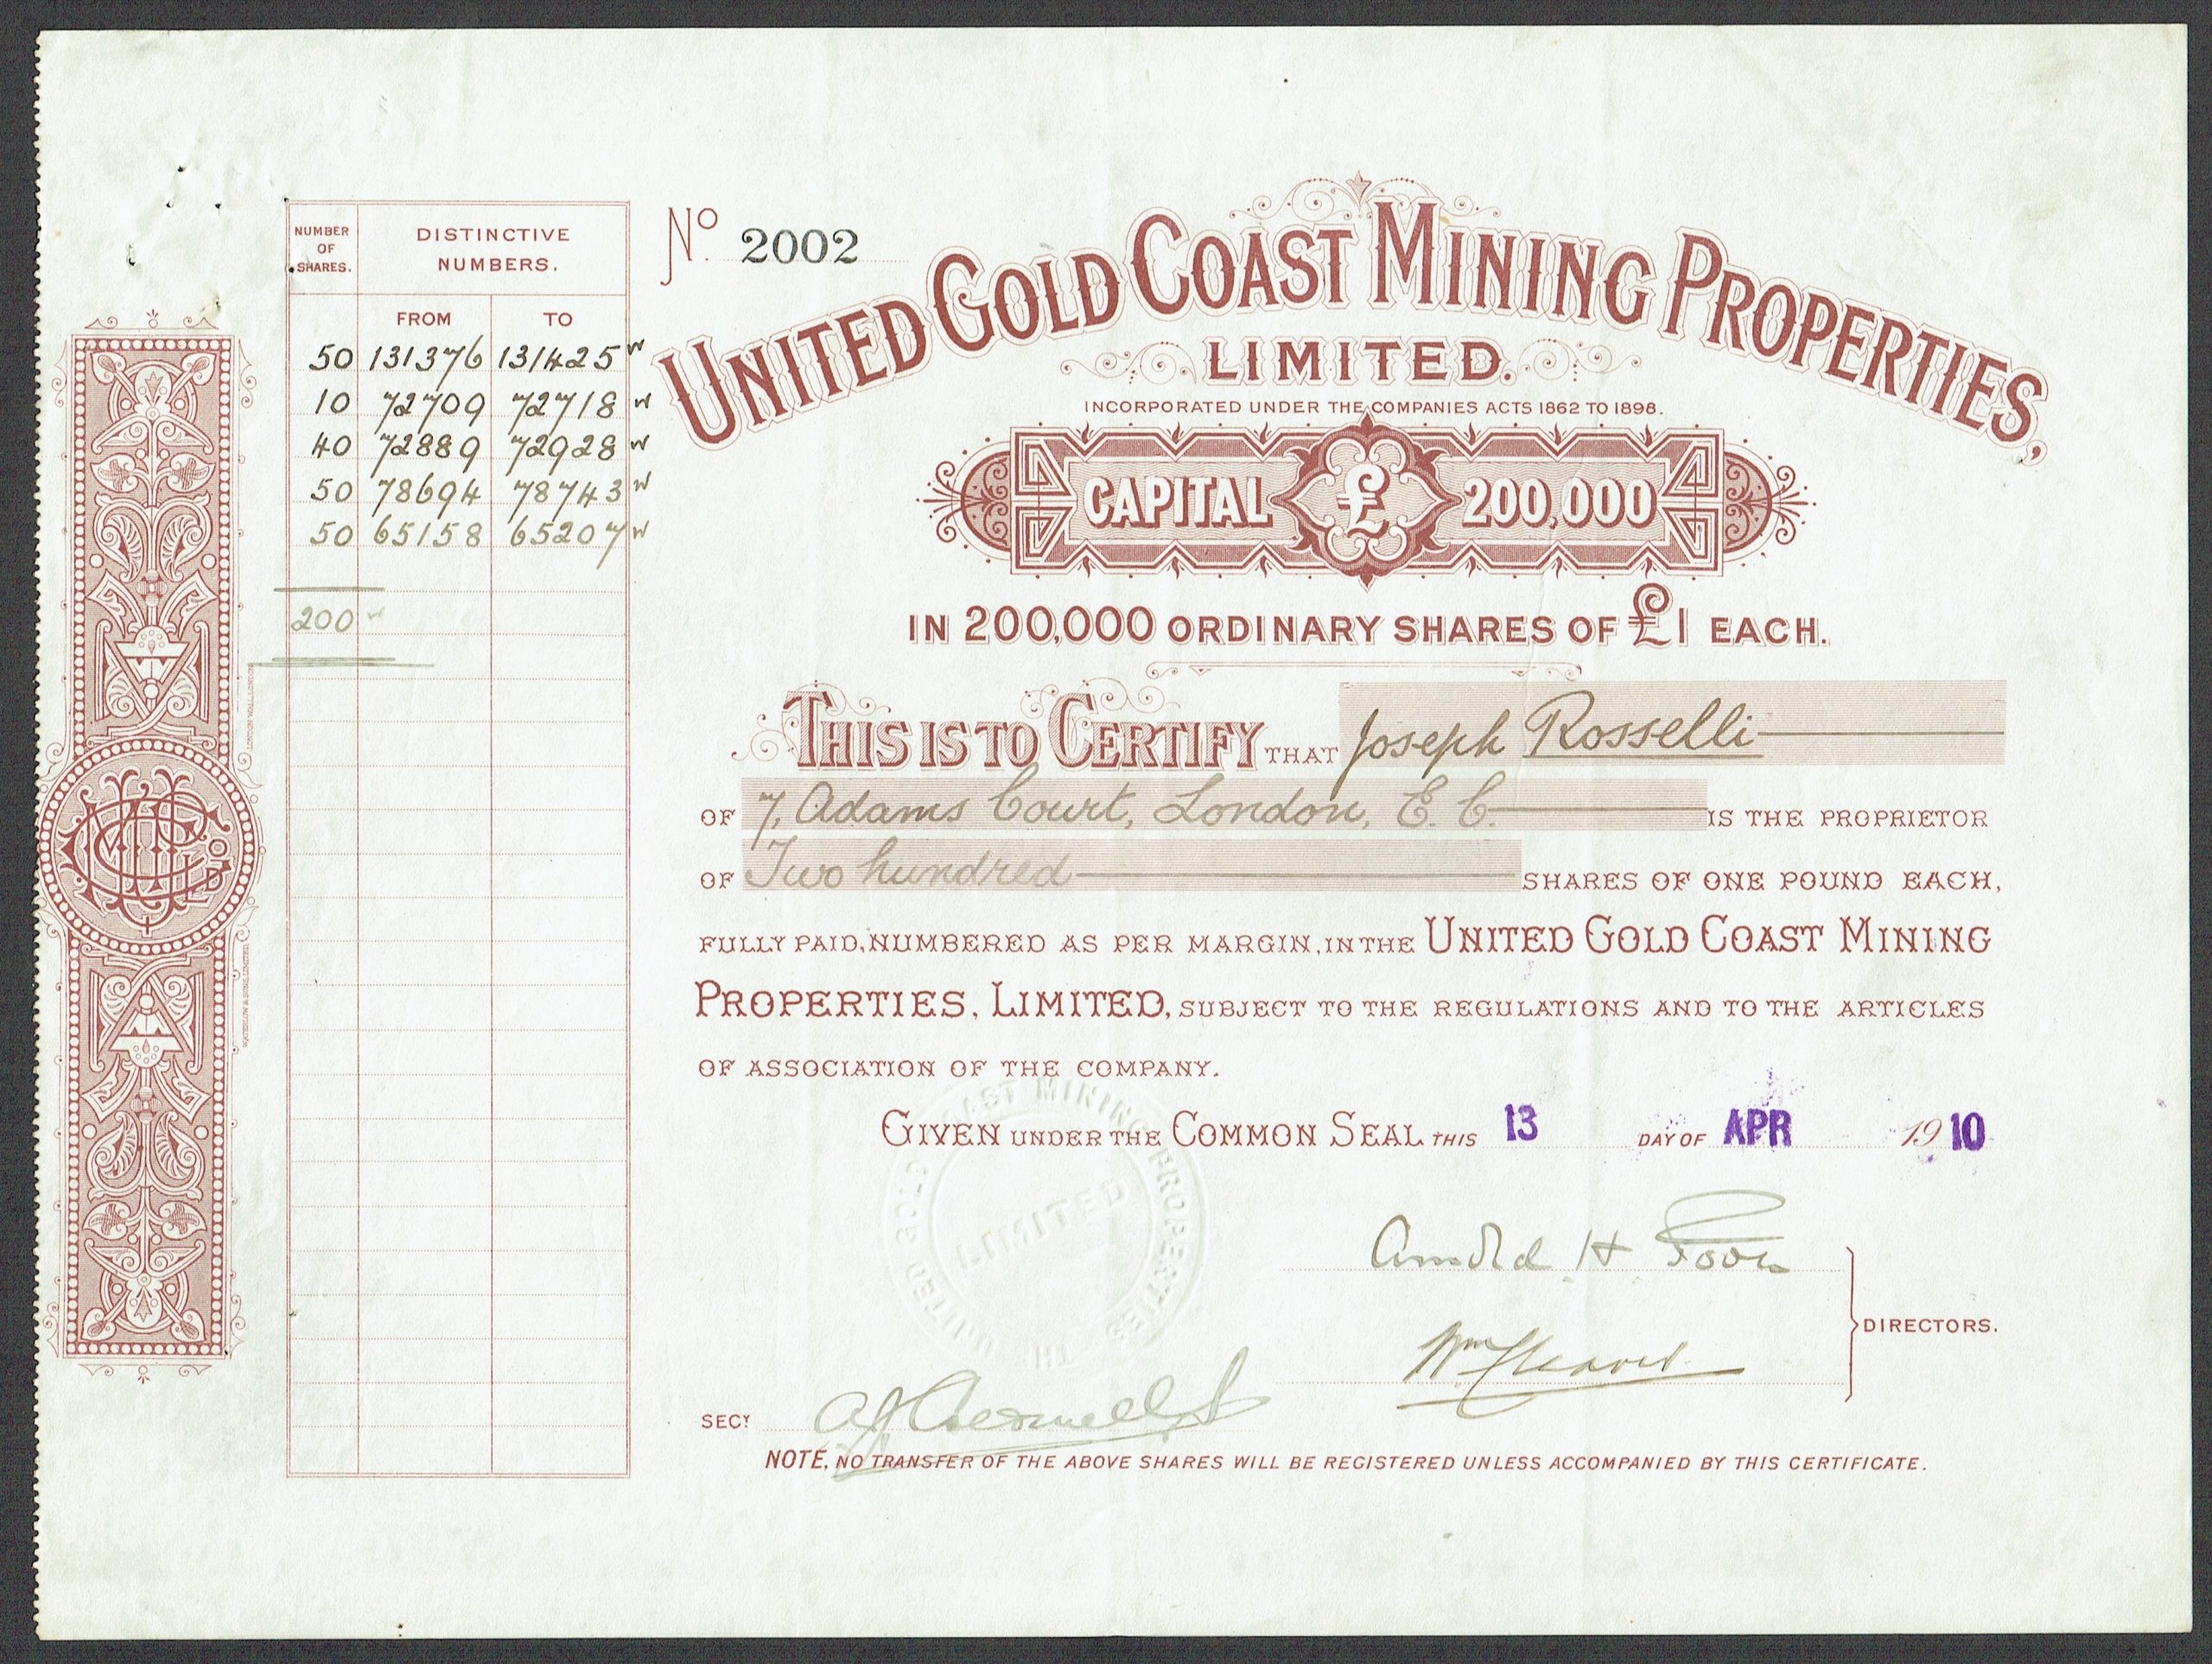 NUMBER OF SHARES.
DISTINCTIVE NUMBERS.
FROM TO
50 131376 131425
10 72709 72718
40 72889 72928
50 78694 78743
50 65158 65207
200
Nº 2002
UNITED GOLD COAST MINING PROPERTIES,
LIMITED.
INCORPORATED UNDER THE COMPANIES ACTS 1862 TO 1898.
CAPITAL £ 200,000
IN 200,000 ORDINARY SHARES OF £1 EACH.
THIS IS TO CERTIFY THAT Joseph Rosselli
OF 7, Adams Court, London, E.C. IS THE PROPRIETOR
OF Two hundred SHARES OF ONE POUND EACH,
FULLY PAID, NUMBERED AS PER MARGIN, IN THE UNITED GOLD COAST MINING
PROPERTIES, LIMITED, SUBJECT TO THE REGULATIONS AND TO THE ARTICLES
OF ASSOCIATION OF THE COMPANY.
GIVEN UNDER THE COMMON SEAL THIS 13 DAY OF APR 1910
THE UNITED GOLD COAST MINING PROPERTIES
LIMITED
DIRECTORS.
SECY
NOTE, NO TRANSFER OF THE ABOVE SHARES WILL BE REGISTERED UNLESS ACCOMPANIED BY THIS CERTIFICATE.
WATERLOW & SONS LIMITED, LONDON WALL, LONDON